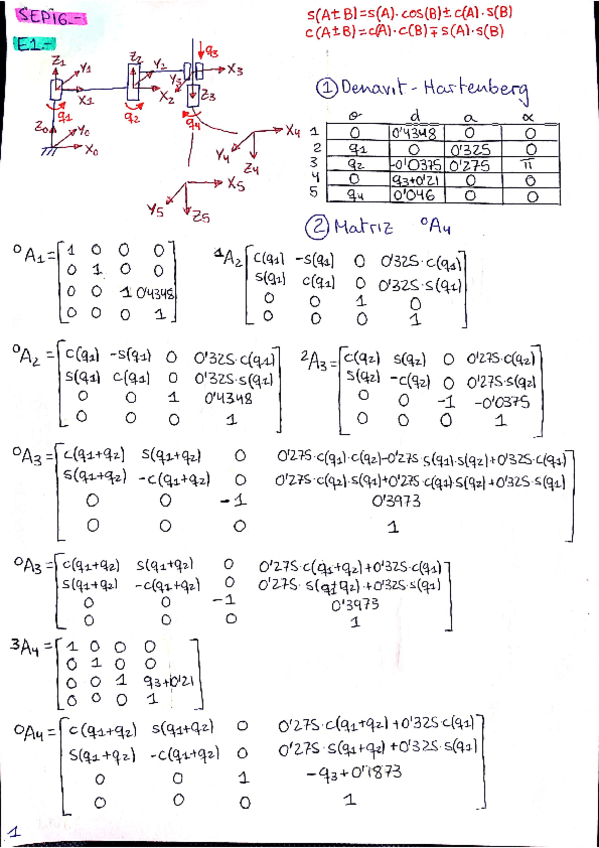 SEP16.-
s(A±B)=s(A)·cos(B)±c(A)·s(B)
c(A±B)=c(A)·c(B)∓s(A)·s(B)
E1.-
Z1 Y1 X1 q1
Z2 Y2 X2 q2
q3 X3 Y3 Z3 q4
Z0 Y0 X0
X4 Y4 Z4
X5 Y5 Z5
① Denavit-Hartenberg
θ d a α
1 0 0'4348 0 0
2 q1 0 0'325 0
3 q2 -0'0375 0'275 π
4 0 q3+0'21 0 0
5 q4 0'046 0 0
② Matriz ⁰A4
⁰A1 =
1 0 0 0
0 1 0 0
0 0 1 0'4348
0 0 0 1
¹A2
c(q1) -s(q1) 0 0'325·c(q1)
s(q1) c(q1) 0 0'325·s(q1)
0 0 1 0
0 0 0 1
⁰A2 =
c(q1) -s(q1) 0 0'325·c(q1)
s(q1) c(q1) 0 0'325·s(q1)
0 0 1 0'4348
0 0 0 1
²A3 =
c(q2) s(q2) 0 0'275·c(q2)
s(q2) -c(q2) 0 0'275·s(q2)
0 0 -1 -0'0375
0 0 0 1
⁰A3 =
c(q1+q2) s(q1+q2) 0 0'275·c(q1)·c(q2)-0'275·s(q1)·s(q2)+0'325·c(q1)
s(q1+q2) -c(q1+q2) 0 0'275·c(q2)·s(q1)+0'275·c(q1)·s(q2)+0'325·s(q1)
0 0 -1 0'3973
0 0 0 1
⁰A3 =
c(q1+q2) s(q1+q2) 0 0'275·c(q1+q2)+0'325·c(q1)
s(q1+q2) -c(q1+q2) 0 0'275·s(q1+q2)+0'325·s(q1)
0 0 -1 0'3973
0 0 0 1
³A4 =
1 0 0 0
0 1 0 0
0 0 1 q3+0'21
0 0 0 1
⁰A4 =
c(q1+q2) s(q1+q2) 0 0'275·c(q1+q2)+0'325c(q1)
s(q1+q2) -c(q1+q2) 0 0'275·s(q1+q2)+0'325·s(q1)
0 0 1 -q3+0'1873
0 0 0 1
1